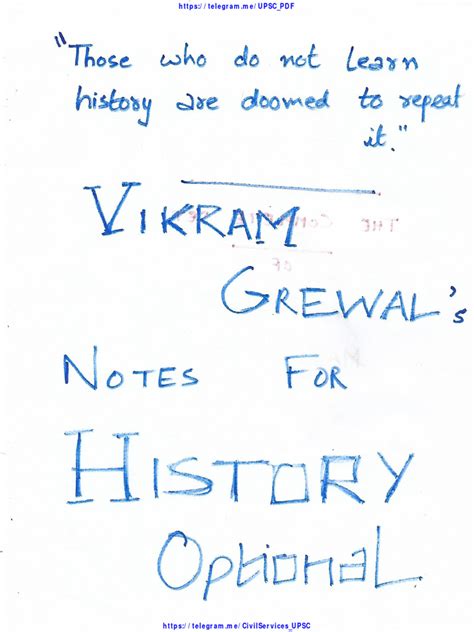 https://telegram.me/UPSC_PDF
"Those who do not learn
history are doomed to repeat
it."
VIKRAM
GREWAL's
NOTES FOR
HISTORY
Optional
https://telegram.me/CivilServices_UPSC